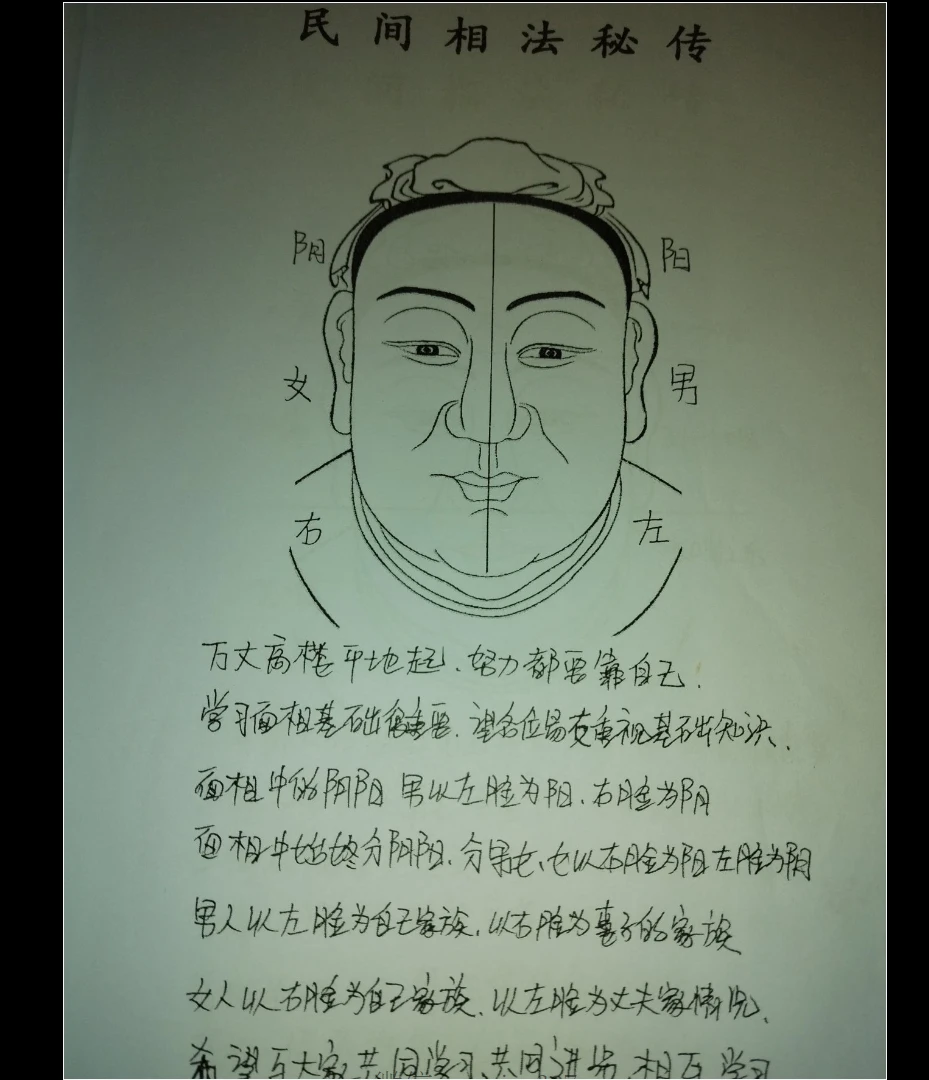 民间相法秘传
阴 阳
女 男
右 左
万丈高楼平地起、努力都要靠自己.
学习面相基础很重要、望各位易友重视基础知识、
面相中的阴阳 男以左脸为阳、右脸为阴
面相中始终分阴阳、分男女、女以右脸为阳左脸为阴
男人以左脸为自己家族、以右脸为妻子的家族
女人以右脸为自己家族、以左脸为丈夫家情况、
希望与大家共同学习、共同进步、相互学习